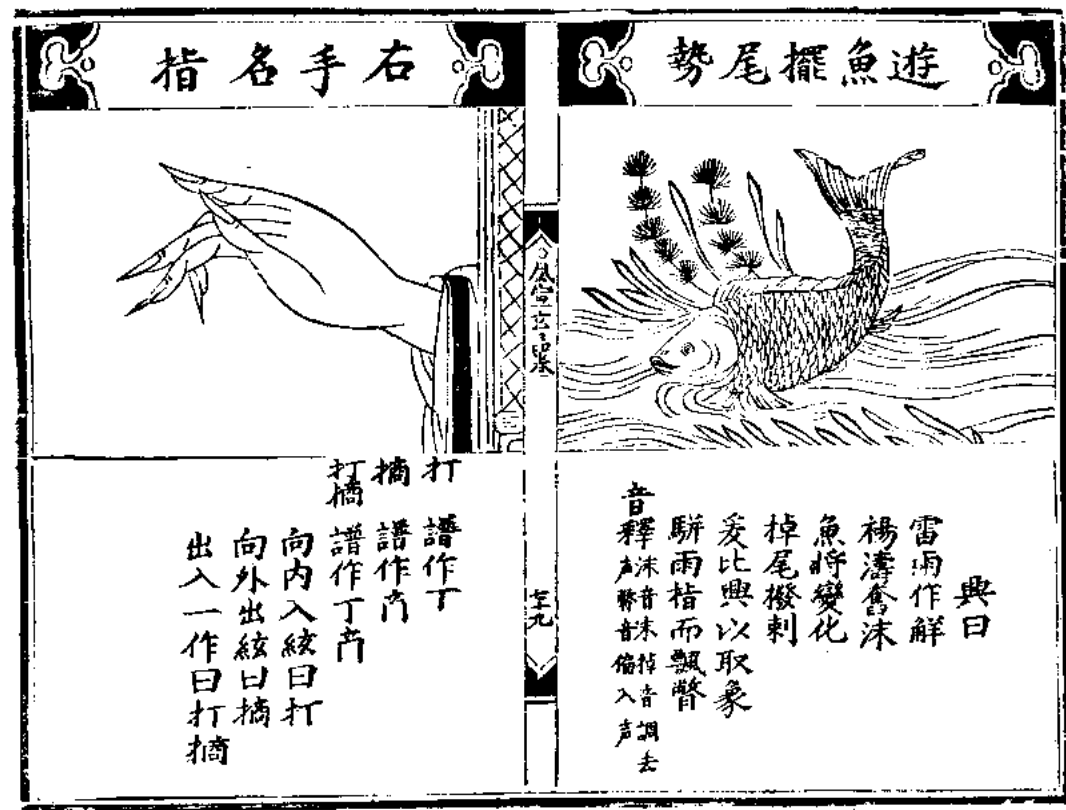 遊魚擺尾勢
興曰
雷雨作解
楊濤奮沫
魚將變化
掉尾撥剌
爰比興以取象
駢兩指而飄瞥
音釋 沫音末掉音調去声瞥音偏入声
風宣玄品
右手名指
打 譜作丁
摘 譜作
打摘 譜作丁
向内入絃曰打
向外出絃曰摘
出入一作曰打摘